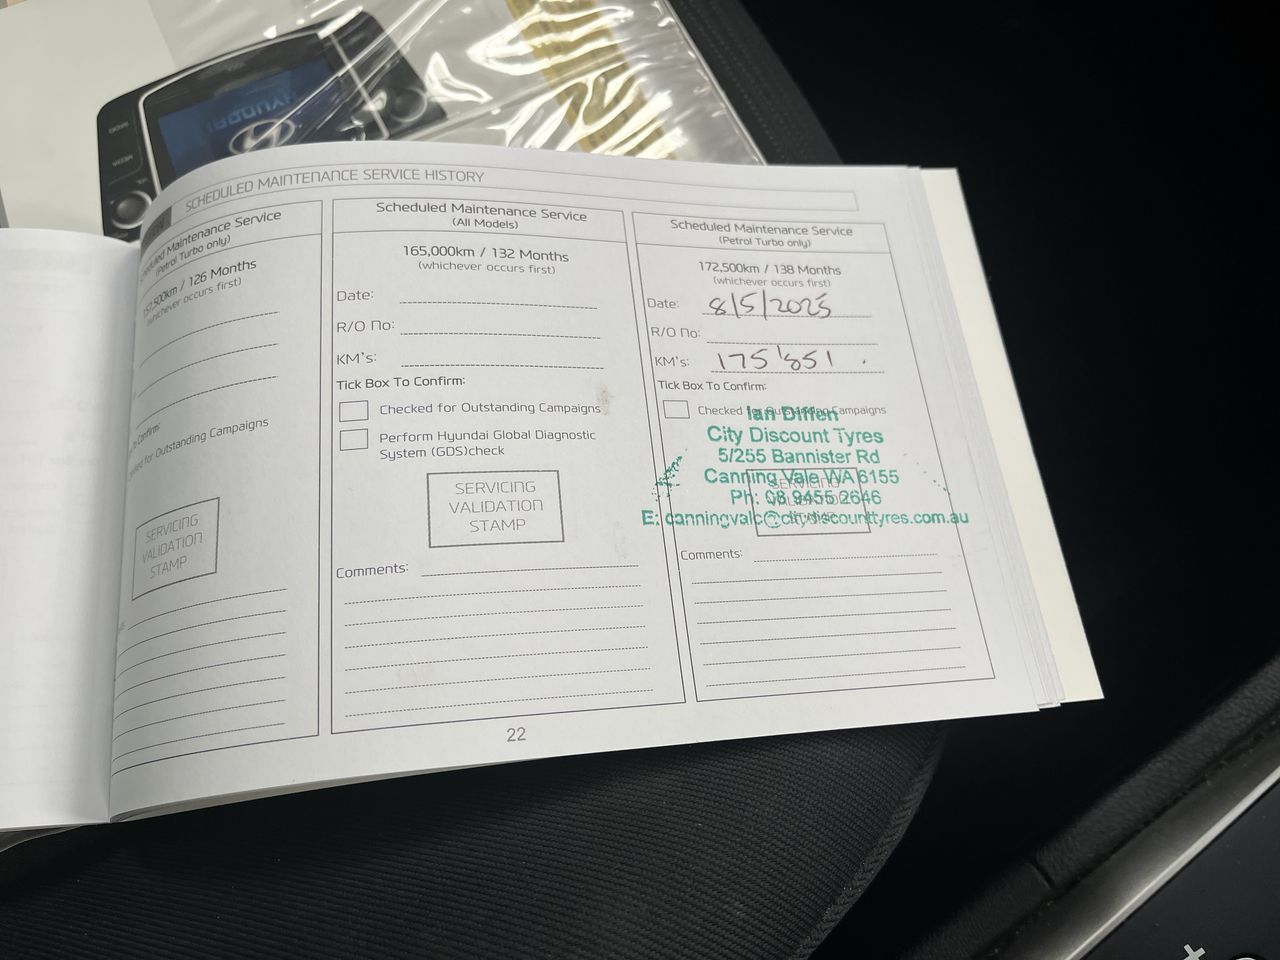 SCHEDULED MAINTENANCE SERVICE HISTORY
Maintenance Service
(Petrol Turbo only)
157,500km / 126 Months
(whichever occurs first)
Outstanding Campaigns
SERVICING
VALIDATION
STAMP
Scheduled Maintenance Service
(All Models)
165,000km / 132 Months
(whichever occurs first)
Date:
R/O No:
KM's:
Tick Box To Confirm:
Checked for Outstanding Campaigns
Perform Hyundai Global Diagnostic
System (GDS)check
SERVICING
VALIDATION
STAMP
Comments:
Scheduled Maintenance Service
(Petrol Turbo only)
172,500km / 138 Months
(whichever occurs first)
Date: 8/5/2025
R/O No:
KM's: 175'851
Tick Box To Confirm:
Checked for Outstanding Campaigns
Ian Diffen
City Discount Tyres
5/255 Bannister Rd
Canning Vale WA 6155
Ph: 08 9455 2646
E: canningvale@citydiscounttyres.com.au
Comments:
22
HYUNDAI
RADIO
MEDIA